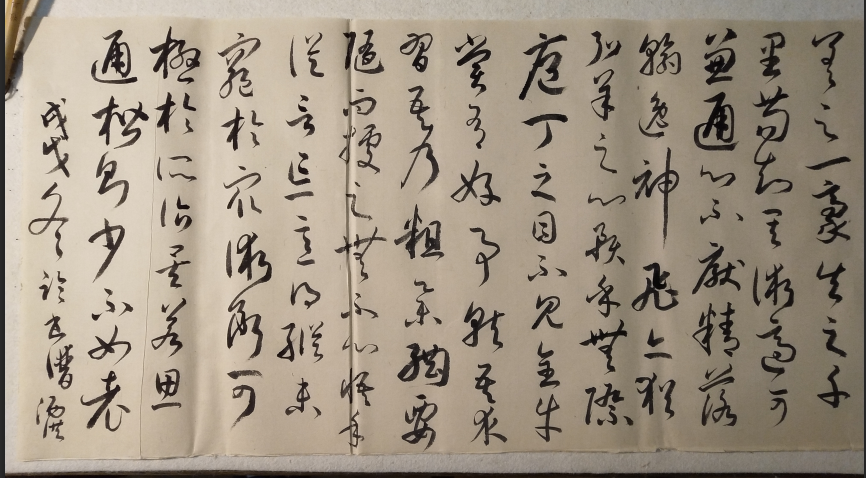 差之一豪失之千
里苟知其術適可
兼通心不厭精落
翰逸神飛亦猶
弘羊之心預乎無際
庖丁之目不見全牛
嘗有好事就吾求
習吾乃粗舉綱要
隨而授之無不心悟手
從言忘意得縱未
窮於眾術斷可
極於所詣矣若思
通楷則少不如老
戊戌冬